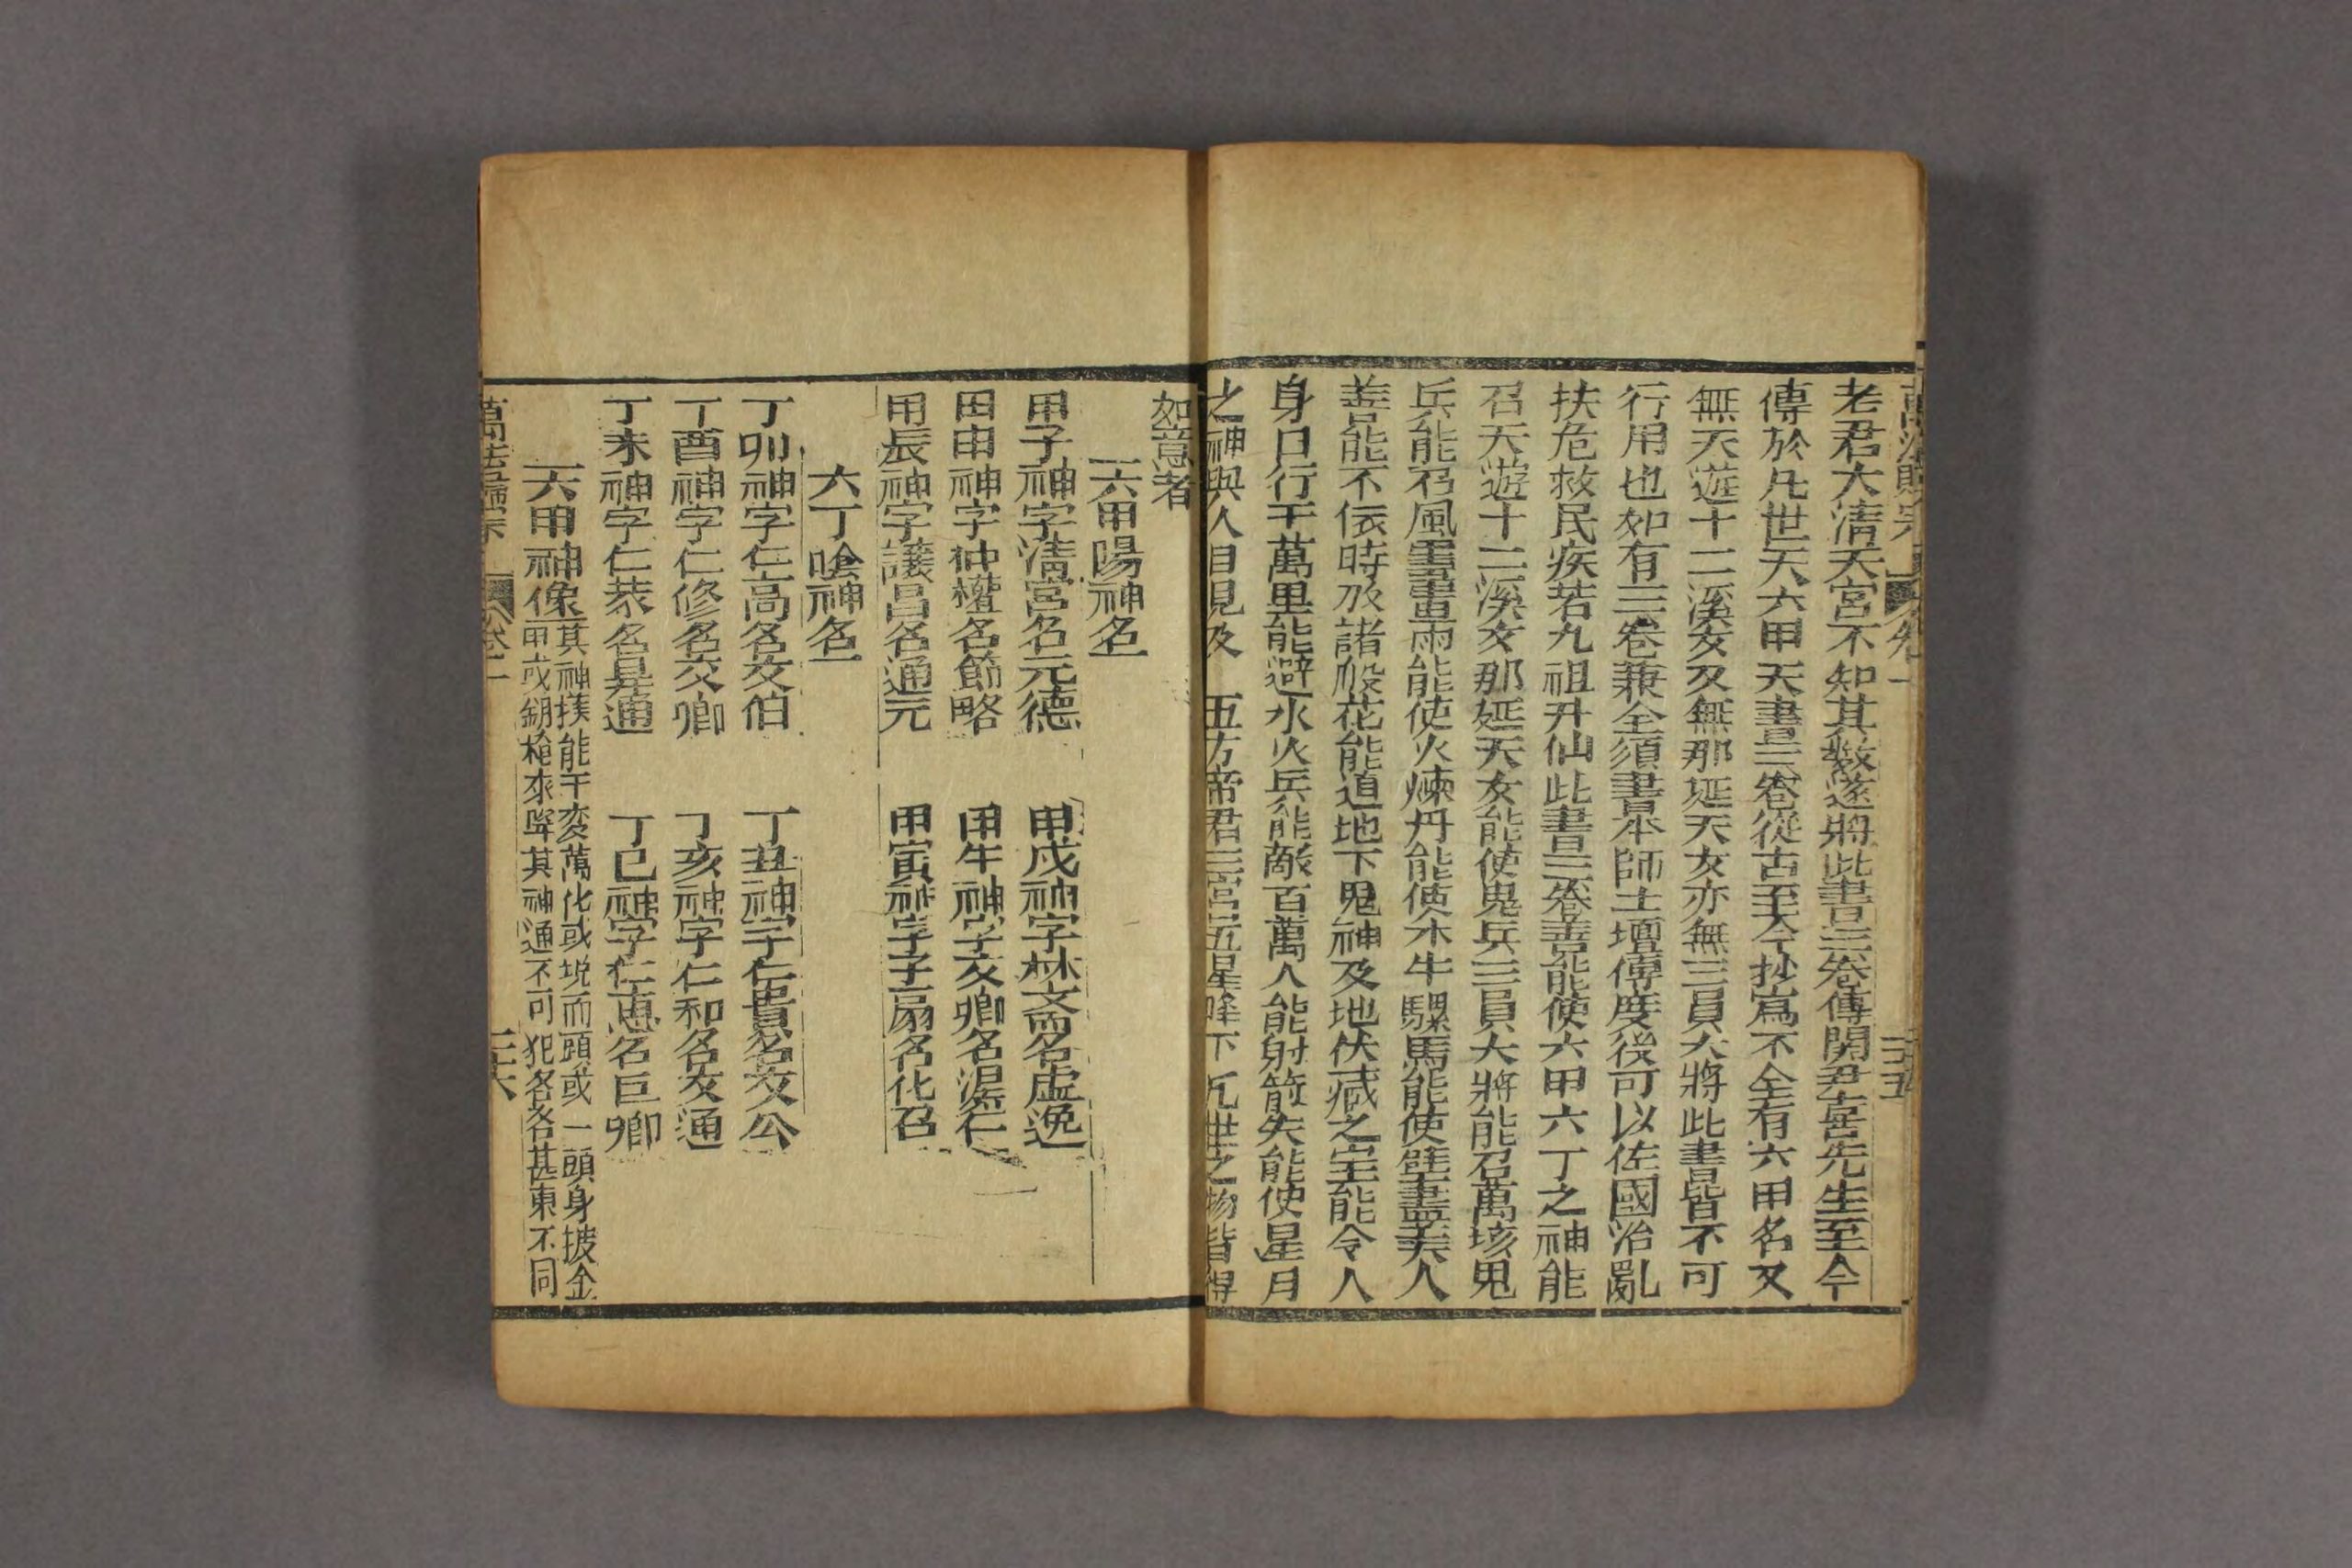 萬法歸宗 卷一 三五
老君大清天宮不知其数遂將此書三卷傳開尹喜先生至今
傳於凡世天六甲天書三卷從古至今抄寫不全有六甲名又
無天遊十二溪女又無那延天女亦無三員大將此書皆不可
行用也如有三卷兼全須書本師土壇傳度後可以佐國治亂
扶危救民疾若九祖升仙此書三卷善能使六甲六丁之神能
召天遊十二溪女那延天女能使鬼兵三員大將能召萬垓鬼
兵能召風雲晝雨能使火煉丹能使木牛騾馬能使壁畫美人
善能不依時及諸般花能道地下鬼神及地伏藏之宝能令人
身日行千萬里能避水火兵能敵百萬人能射箭矢能使星月
之神與人目見及 五方帝君三宮五星降下凡世之物皆得
如意者
六甲陽神名
甲子神字清宮名元德 甲戌神字林文而名虛逸
甲申神字仲權名節略 甲午神字文卿名渥仁
甲辰神字讓昌名通元 甲寅神字子扇名化召
六丁陰神名
丁卯神字仁高名文伯 丁丑神字仁貴名文公
丁酉神字仁修名文卿 丁亥神字仁和名文通
丁未神字仁恭名昇通 丁巳神字仁惠名巨卿
六甲神像 其神撲能千变萬化或兇而頭或一頭身披金
甲或鎗來降其神通不可犯各各甚東不同
萬法歸宗 卷一 三六